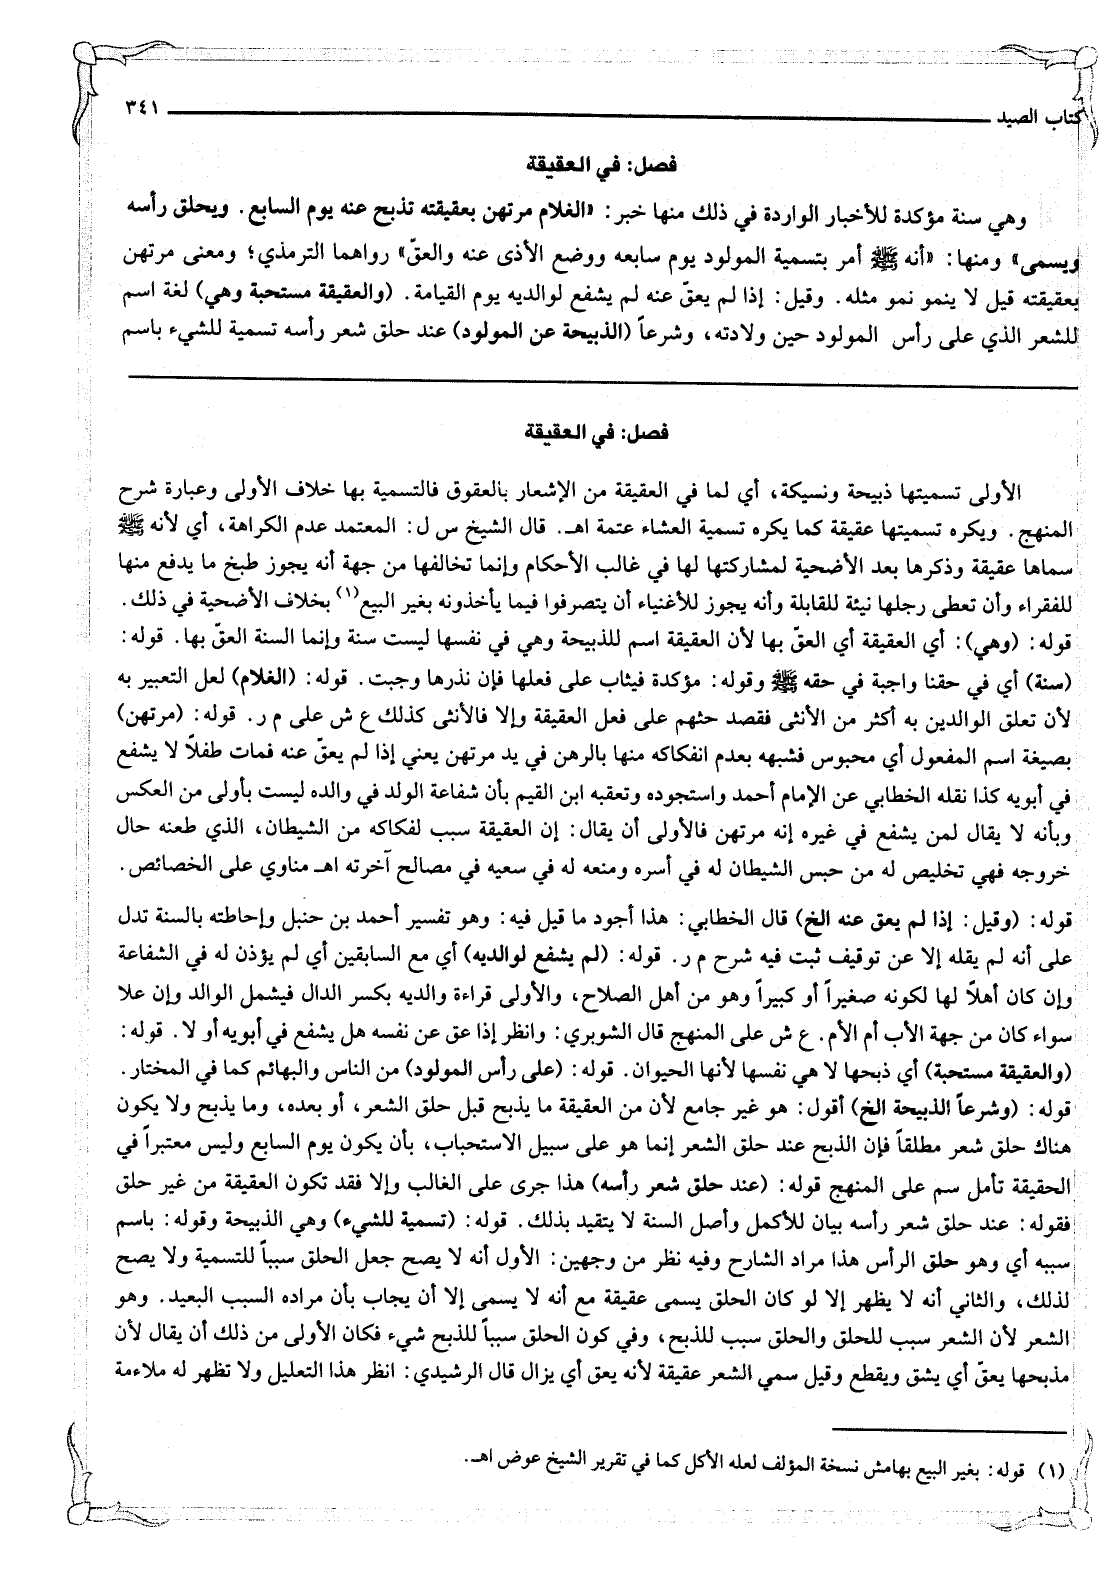 كتاب الصيد ٣٤١
فصل: في العقيقة
وهي سنة مؤكدة للأخبار الواردة في ذلك منها خبر: «الغلام مرتهن بعقيقته تذبح عنه يوم السابع. ويحلق رأسه
ويسمى» ومنها: «أنه ﷺ أمر بتسمية المولود يوم سابعه ووضع الأذى عنه والعقّ» رواهما الترمذي؛ ومعنى مرتهن
بعقيقته قيل لا ينمو نمو مثله. وقيل: إذا لم يعقّ عنه لم يشفع لوالديه يوم القيامة. (والعقيقة مستحبة وهي) لغة اسم
للشعر الذي على رأس المولود حين ولادته، وشرعاً (الذبيحة عن المولود) عند حلق شعر رأسه تسمية للشيء باسم
فصل: في العقيقة
الأولى تسميتها ذبيحة ونسيكة، أي لما في العقيقة من الإشعار بالعقوق فالتسمية بها خلاف الأولى وعبارة شرح
المنهج. ويكره تسميتها عقيقة كما يكره تسمية العشاء عتمة اهـ. قال الشيخ س ل: المعتمد عدم الكراهة، أي لأنه ﷺ
سماها عقيقة وذكرها بعد الأضحية لمشاركتها لها في غالب الأحكام وإنما تخالفها من جهة أنه يجوز طبخ ما يدفع منها
للفقراء وأن تعطى رجلها نيئة للقابلة وأنه يجوز للأغنياء أن يتصرفوا فيما يأخذونه بغير البيع(١) بخلاف الأضحية في ذلك.
قوله: (وهي): أي العقيقة أي العقّ بها لأن العقيقة اسم للذبيحة وهي في نفسها ليست سنة وإنما السنة العقّ بها. قوله:
(سنة) أي في حقنا واجبة في حقه ﷺ وقوله: مؤكدة فيثاب على فعلها فإن نذرها وجبت. قوله: (الغلام) لعل التعبير به
لأن تعلق الوالدين به أكثر من الأنثى فقصد حثهم على فعل العقيقة وإلا فالأنثى كذلك ع ش على م ر. قوله: (مرتهن)
بصيغة اسم المفعول أي محبوس فشبهه بعدم انفكاكه منها بالرهن في يد مرتهن يعني إذا لم يعقّ عنه فمات طفلاً لا يشفع
في أبويه كذا نقله الخطابي عن الإمام أحمد واستجوده وتعقبه ابن القيم بأن شفاعة الولد في والده ليست بأولى من العكس
وبأنه لا يقال لمن يشفع في غيره إنه مرتهن فالأولى أن يقال: إن العقيقة سبب لفكاكه من الشيطان، الذي طعنه حال
خروجه فهي تخليص له من حبس الشيطان له في أسره ومنعه له في سعيه في مصالح آخرته اهـ مناوي على الخصائص.
قوله: (وقيل: إذا لم يعق عنه الخ) قال الخطابي: هذا أجود ما قيل فيه: وهو تفسير أحمد بن حنبل وإحاطته بالسنة تدل
على أنه لم يقله إلا عن توقيف ثبت فيه شرح م ر. قوله: (لم يشفع لوالديه) أي مع السابقين أي لم يؤذن له في الشفاعة
وإن كان أهلاً لها لكونه صغيراً أو كبيراً وهو من أهل الصلاح، والأولى قراءة والديه بكسر الدال فيشمل الوالد وإن علا
سواء كان من جهة الأب أم الأم. ع ش على المنهج قال الشوبري: وانظر إذا عق عن نفسه هل يشفع في أبويه أو لا. قوله:
(والعقيقة مستحبة) أي ذبحها لا هي نفسها لأنها الحيوان. قوله: (على رأس المولود) من الناس والبهائم كما في المختار.
قوله: (وشرعاً الذبيحة الخ) أقول: هو غير جامع لأن من العقيقة ما يذبح قبل حلق الشعر، أو بعده، وما يذبح ولا يكون
هناك حلق شعر مطلقاً فإن الذبح عند حلق الشعر إنما هو على سبيل الاستحباب، بأن يكون يوم السابع وليس معتبراً في
الحقيقة تأمل سم على المنهج قوله: (عند حلق شعر رأسه) هذا جرى على الغالب وإلا فقد تكون العقيقة من غير حلق
فقوله: عند حلق شعر رأسه بيان للأكمل وأصل السنة لا يتقيد بذلك. قوله: (تسمية للشيء) وهي الذبيحة وقوله: باسم
سببه أي وهو حلق الرأس هذا مراد الشارح وفيه نظر من وجهين: الأول أنه لا يصح جعل الحلق سبباً للتسمية ولا يصح
لذلك، والثاني أنه لا يظهر إلا لو كان الحلق يسمى عقيقة مع أنه لا يسمى إلا أن يجاب بأن مراده السبب البعيد. وهو
الشعر لأن الشعر سبب للحلق والحلق سبب للذبح، وفي كون الحلق سبباً للذبح شيء فكان الأولى من ذلك أن يقال لأن
مذبحها يعقّ أي يشق ويقطع وقيل سمي الشعر عقيقة لأنه يعق أي يزال قال الرشيدي: انظر هذا التعليل ولا تظهر له ملاءمة
(١) قوله: بغير البيع بهامش نسخة المؤلف لعله الأكل كما في تقرير الشيخ عوض اهـ.